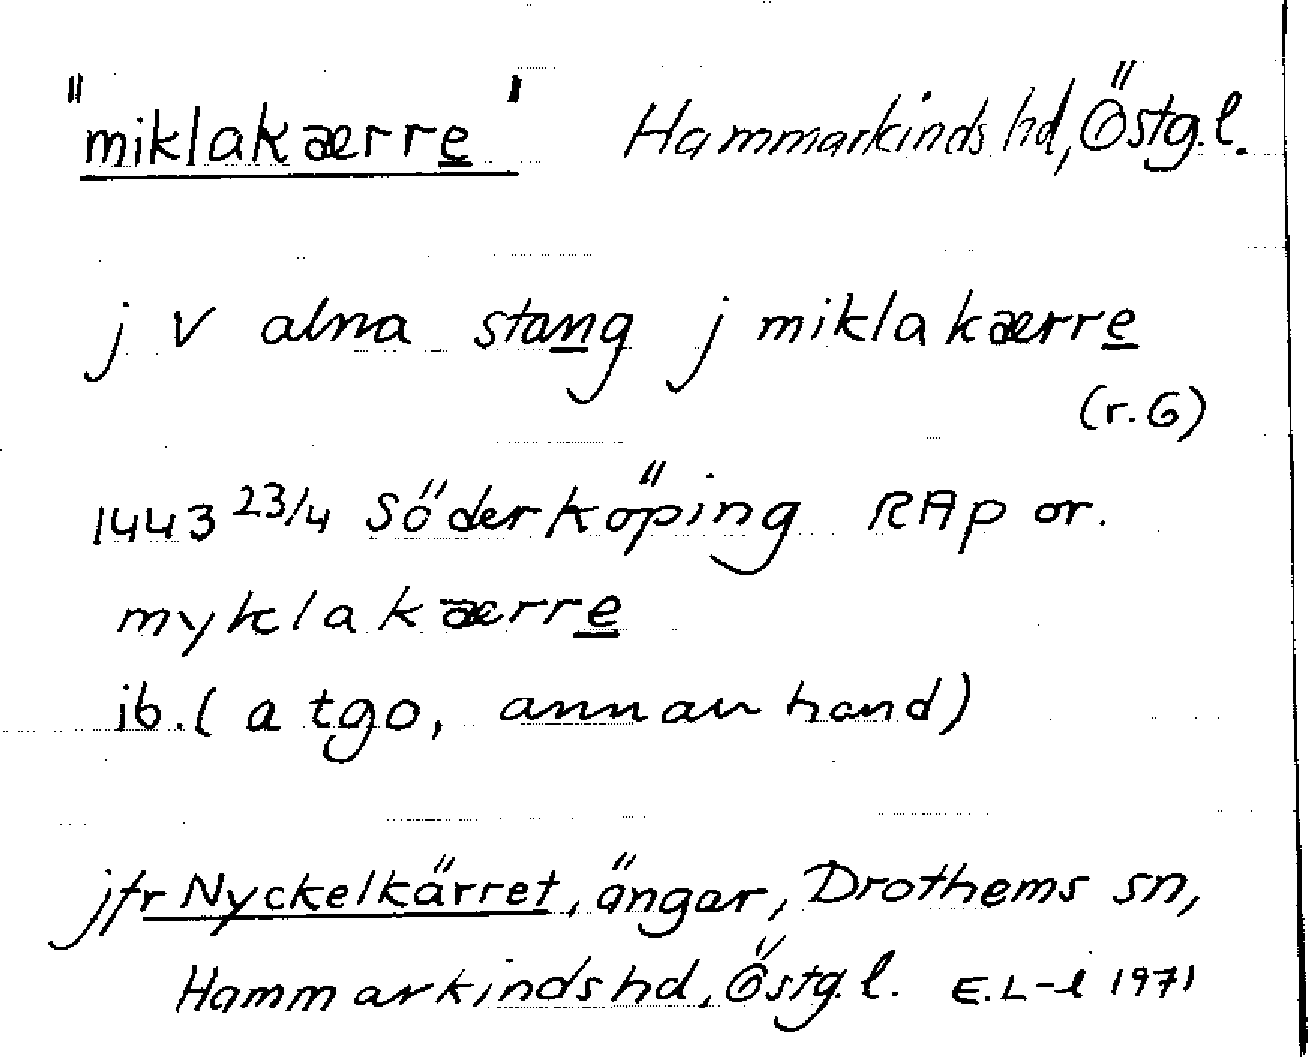 "miklakærre" Hammarkinds hd, Östg.l.
j v alna stang j miklakærre
(r.6)
1443 23/4 Söderköping RAp or.
myklakærre
ib. (a tgo, annan hand)
jfr Nyckelkärret, ängar, Drothems sn,
Hammarkinds hd, Östg.l. E.L-l 1971